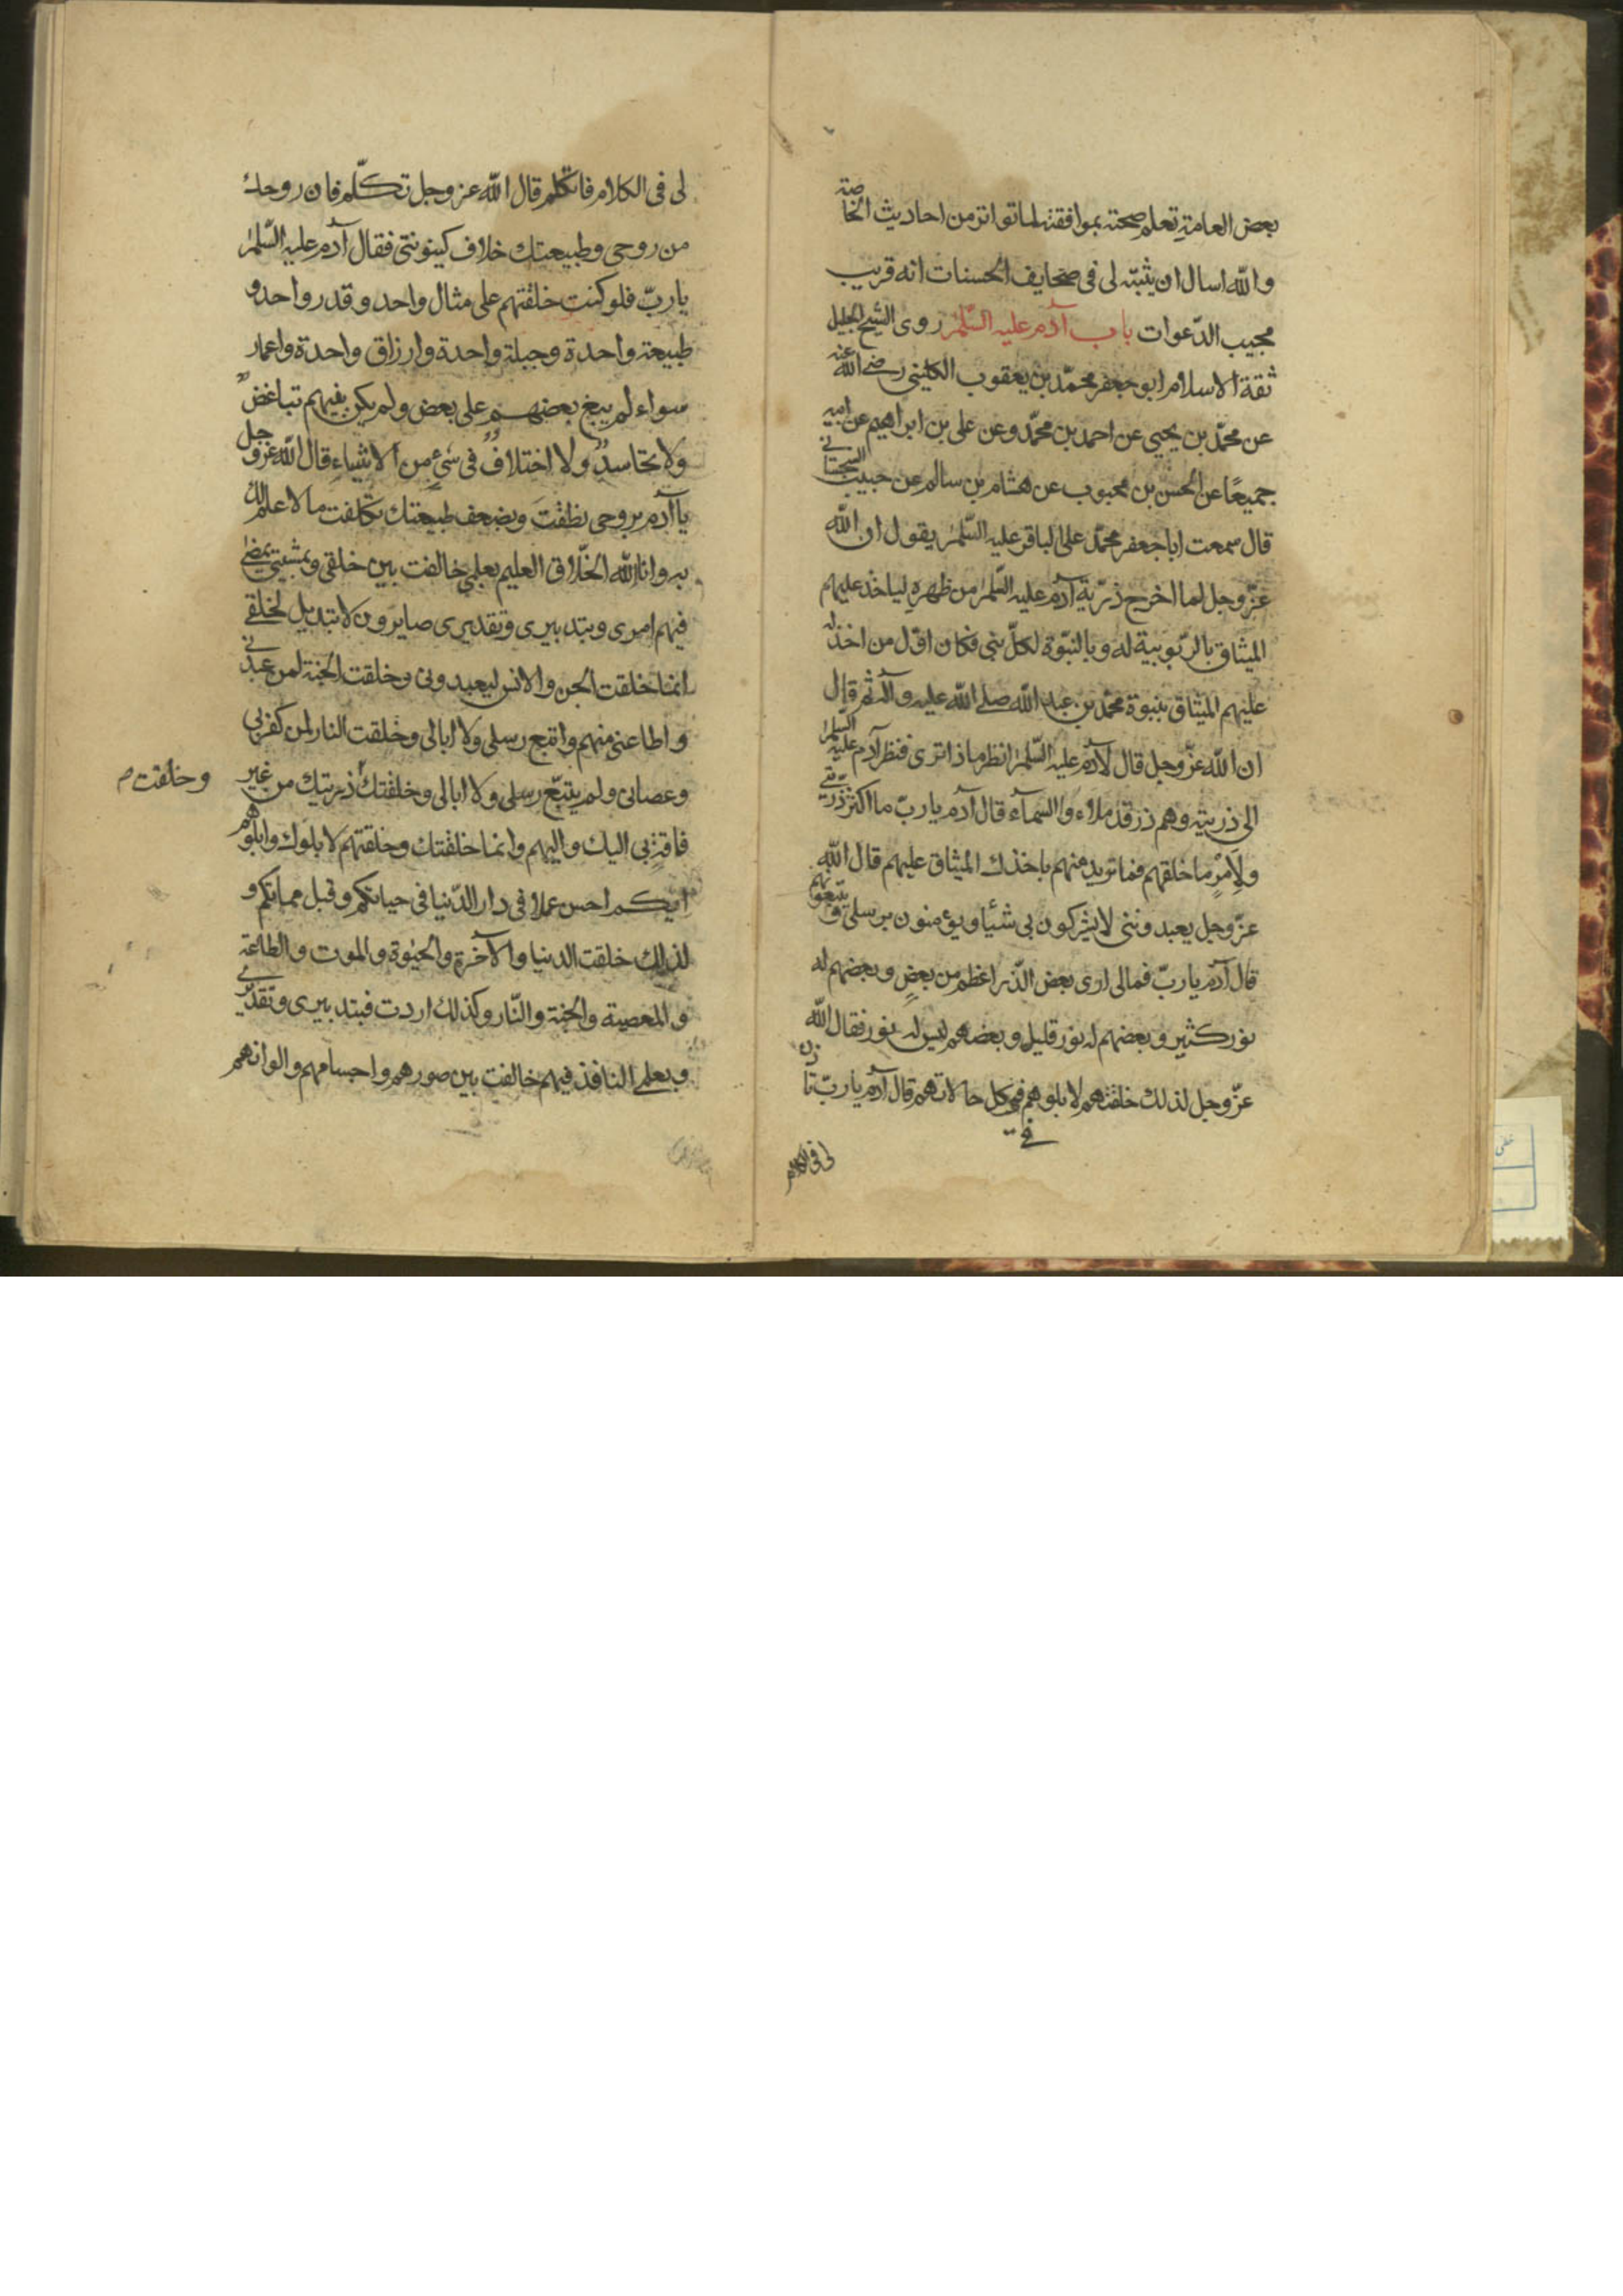 بعض العامة تعلم صحته بموافقته لما تواتر من احاديث الخاصة
والله اسال ان يثبته لى فى صحايف الحسنات انه قريب
مجيب الدعوات باب آدم عليه السلم روى الشيخ الجليل
ثقة الاسلام ابو جعفر محمد بن يعقوب الكلينى رضى الله عنه
عن محمد بن يحيى عن احمد بن محمد وعن على بن ابراهيم عن ابيه
جميعًا عن الحسن بن محبوب عن هشام بن سالم عن حبيب السجستانى
قال سمعت ابا جعفر محمد على الباقر عليه السلم يقول ان الله
عزّ وجل لما اخرج ذريّة آدم عليه السلم من ظهره لياخذ عليهم
الميثاق بالربوبية له وبالنبوة لكلّ نبى فكان اوّل من اخذ له
عليهم الميثاق بنبوة محمد بن عبد الله صلى الله عليه وآله ثم قال
ان الله عزّ وجل قال لآدم عليه السلم انظر ماذا ترى فنظر آدم عليه السلم
الى ذريته وهم ذر قد ملاء والسماء قال آدم يا ربّ ما اكثر ذريتى
ولامرٍ ما خلقهم فما تريد منهم باخذك الميثاق عليهم قال الله
عزّ وجل يعبدوننى لا يشركون بى شئيا ويؤمنون برسلى ويتبعونهم
قال آدم يا ربّ فمالى ارى بعض الذّر اعظم من بعضٍ وبعضهم له
نور كثير وبعضهم له نور قليل وبعضهم ليس له نور فقال الله
عزّ وجل لذلك خلقتهم لابلوهم فى كل حالاتهم قال آدم يا ربّ تاذن
فى
لى فى الكلام
لى فى الكلام فاتكلم قال الله عز وجل تكلّم فان روحك
من روحى وطبيعتك خلاف كينونتى فقال آدم عليه السلم
يا ربّ فلو كنت خلقتهم على مثال واحد وقدر واحد و
طبيعة واحدة وجبلة واحدة وارزاق واحدة واعمار
سواء لم يبغ بعضهم على بعض ولم يكن بينهم تباغضٌ
ولا تحاسدٌ ولا اختلافٌ فى شىء من الاشياء قال الله عز وجل
يا آدم بروحى نطقت وبضعف طبيعتك تكلفت ما لا علم لك
به وانا الله الخلّاق العليم بعلمى خالفت بين خلقى وبمشيتى يمضى
فيهم امرى وبتدبيرى وتقديرى صايرون لا تبديل لخلقى
انما خلقت الجن والانس ليعبدونى وخلقت الجنة لمن عبدنى
واطاعنى منهم واتبع رسلى ولا ابالى وخلقت النار لمن كفر بى
وعصانى ولم يتبع رسلى ولا ابالى وخلقتك ذريتك من غير
وخلقت م
فاقةٍ بى اليك واليهم وانما خلقتك وخلقتهم لابلوك وابلوهم
ايكم احسن عملا فى دار الدّنيا فى حياتكم وقبل مماتكم و
لذلك خلقت الدنيا والآخرة والحيوة والموت والطاعة
والمعصية والجنة والنّار وكذلك اردت فبتدبيرى وتقديرى
وبعلمى النافذ فيهم خالفت بين صورهم واجسامهم والوانهم